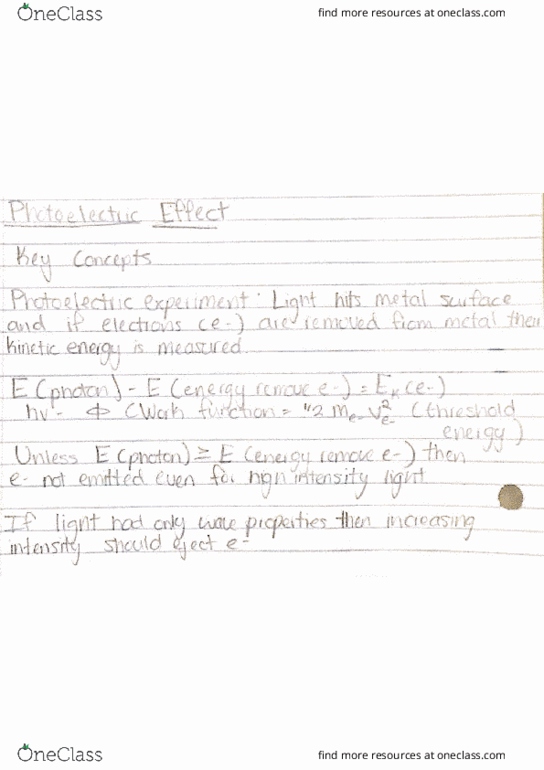 OneClass
find more resources at oneclass.com
Photoelectric Effect
Key Concepts
Photoelectric experiment: Light hits metal surface
and if electrons (e-) are removed from metal then
kinetic energy is measured.
E (photon) - E (energy remove e-) = Eₖ (e-)
hv - Φ (Work function = 1/2 mₑ₋ vₑ₋² (threshold
energy)
Unless E (photon) ≥ E (energy remove e-) then
e- not emitted even for high intensity light
If light had only wave properties then increasing
intensity should eject e-
OneClass
find more resources at oneclass.com